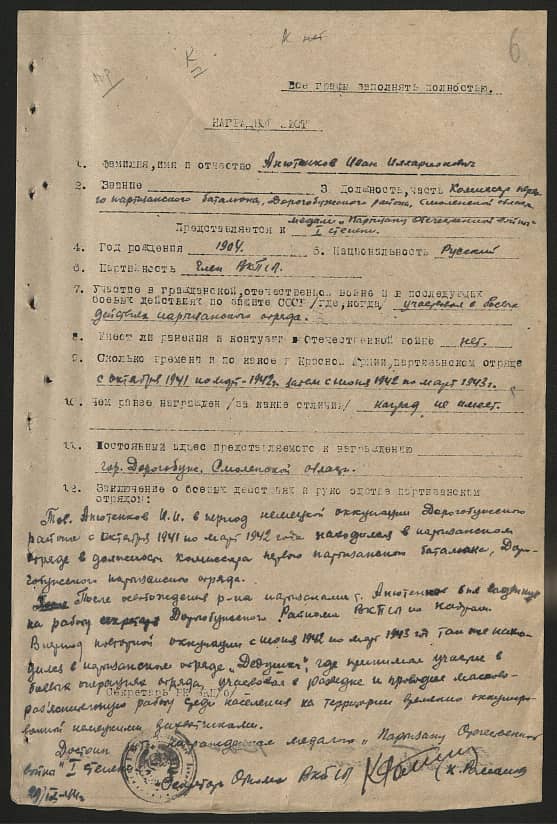 К нет
6
Все графы заполнять полностью.
НАГРАДНОЙ ЛИСТ
1. Фамилия, имя и отчество Анютенков Иван Илларионович
2. Звание 3 Должность, часть Комиссар перво-
го партизанского батальона, Дорогобужского района, Смоленской облас.
Представляется к медали "Партизану Отечественной войны"
I степени.
4. Год рождения 1904. 5. Национальность Русский
6. Партийность Член ВКП(б).
7. Участие в гражданской, отечественной войне и в последующих
боевых действиях по защите СССР /где, когда/ участвовал в боевых
действиях партизанского отряда.
8. Имеет ли ранения и контузии в Отечественной войне нет.
9. Сколько времени и по какое в Красной Армии, партизанском отряде
с октября 1941 по март-1942г. затем с июня 1942 по март 1943г.
10. Чем ранее награжден /за какие отличия/ наград не имеет.
11. Постоянный адрес представляемого к награждению
гор. Дорогобуж, Смоленской области.
12. Заключение о боевых действиях и руководстве партизанском
отрядом:
Тов. Анютенков И.И. в период немецкой оккупации Дорогобужского
района с октября 1941 по март 1942 года находился в партизанском
отряде в должности комиссара первого партизанского батальона, Доро-
гобужского партизанского отряда.
После освобождения р-на партизанами т. Анютенков был
на работу секретаря Дорогобужского Райкома ВКП(б) по кадрам.
В период повторной оккупации с июня 1942 по март 1943 г. Так же нахо-
дился в партизанском отряде "Дедушка", где принимал участие в
боевых операциях отряда, участвовал в разведке и проводил массово-
Секретарь РК ВКП/б/-
разъяснительную работу среди населения на территории временно оккупиро-
ванной немецкими захватчиками.
Достоин награждения медалью "Партизану Отечественной
войны" I степени
Секретарь Обкома ВКП(б)